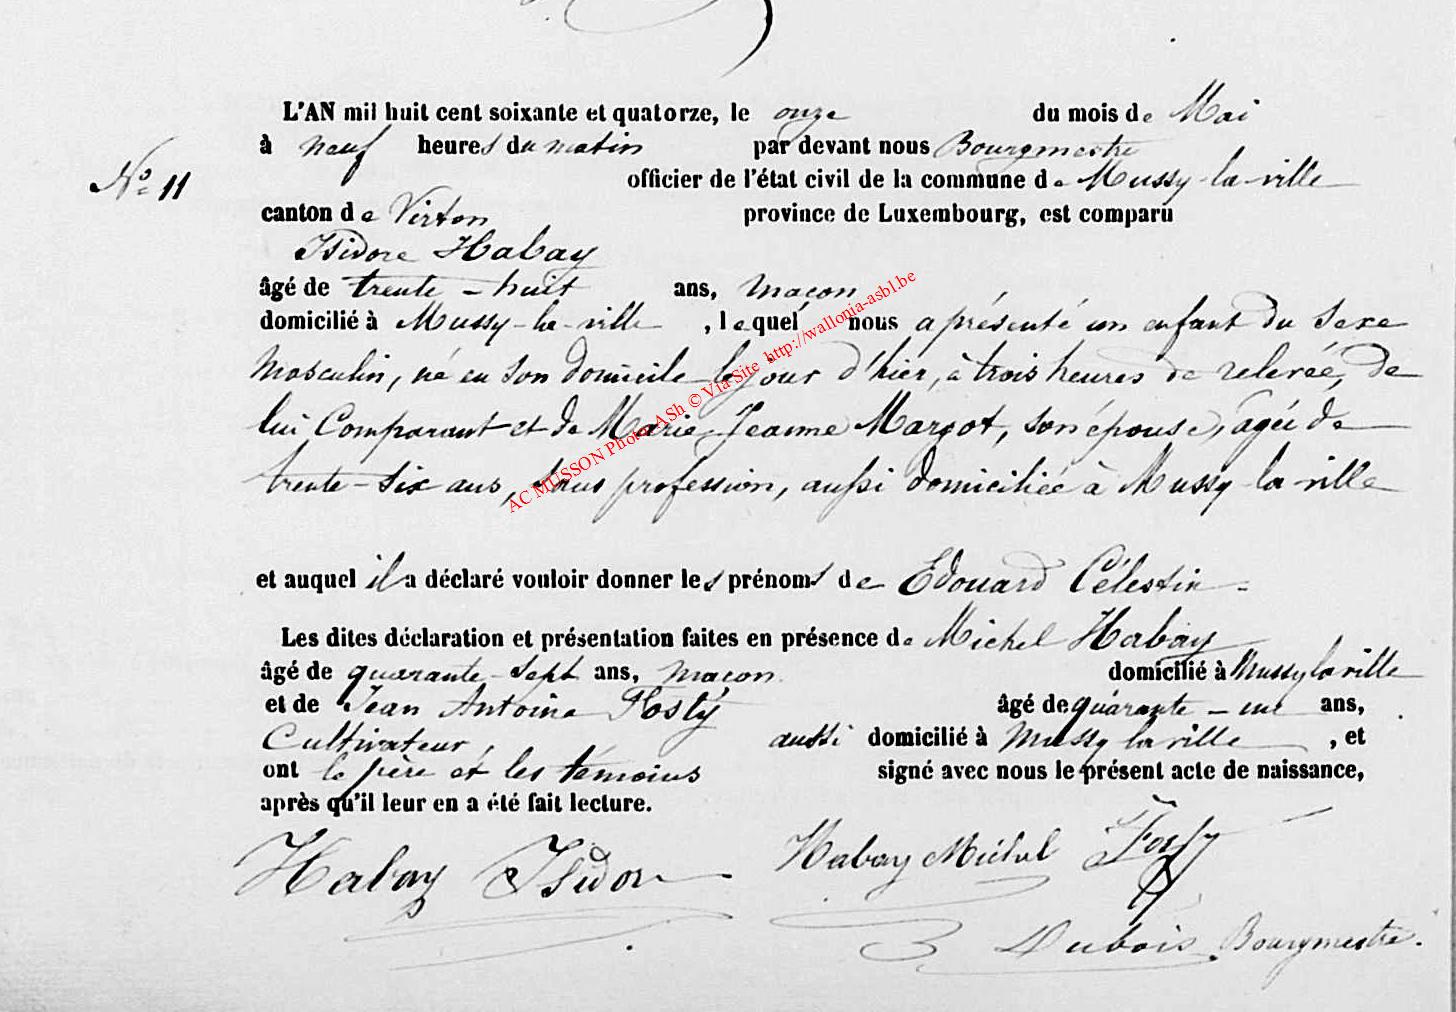 L'AN mil huit cent soixante et quatorze, le onze du mois de Mai
à neuf heures du matin par devant nous Bourgmestre
N° 11 officier de l'état civil de la commune de Mussy-la-ville
canton de Virton province de Luxembourg, est comparu
Isidore Habay
âgé de trente-huit ans, Maçon
domicilié à Mussy-la-ville, lequel nous a présenté un enfant du sexe
Masculin, né en son domicile le jour d'hier, à trois heures de relevée, de
lui Comparant et de Marie Jeanne Margot, son épouse, âgée de
trente-six ans, sans profession, aussi domiciliée à Mussy-la-ville
AC MUSSON Photo ASh © Via Site http://wallonia-asbl.be
et auquel il a déclaré vouloir donner les prénoms de Edouard Célestin
Les dites déclaration et présentation faites en présence de Michel Habay
âgé de quarante-sept ans, maçon domicilié à Mussy la ville
et de Jean Antoine Fosty âgé de quarante-un ans,
Cultivateur, aussi domicilié à Mussy la ville, et
ont le père et les témoins signé avec nous le présent acte de naissance,
après qu'il leur en a été fait lecture.
Habay Isidor Habay Michel Fosty
Dubois, Bourgmestre.